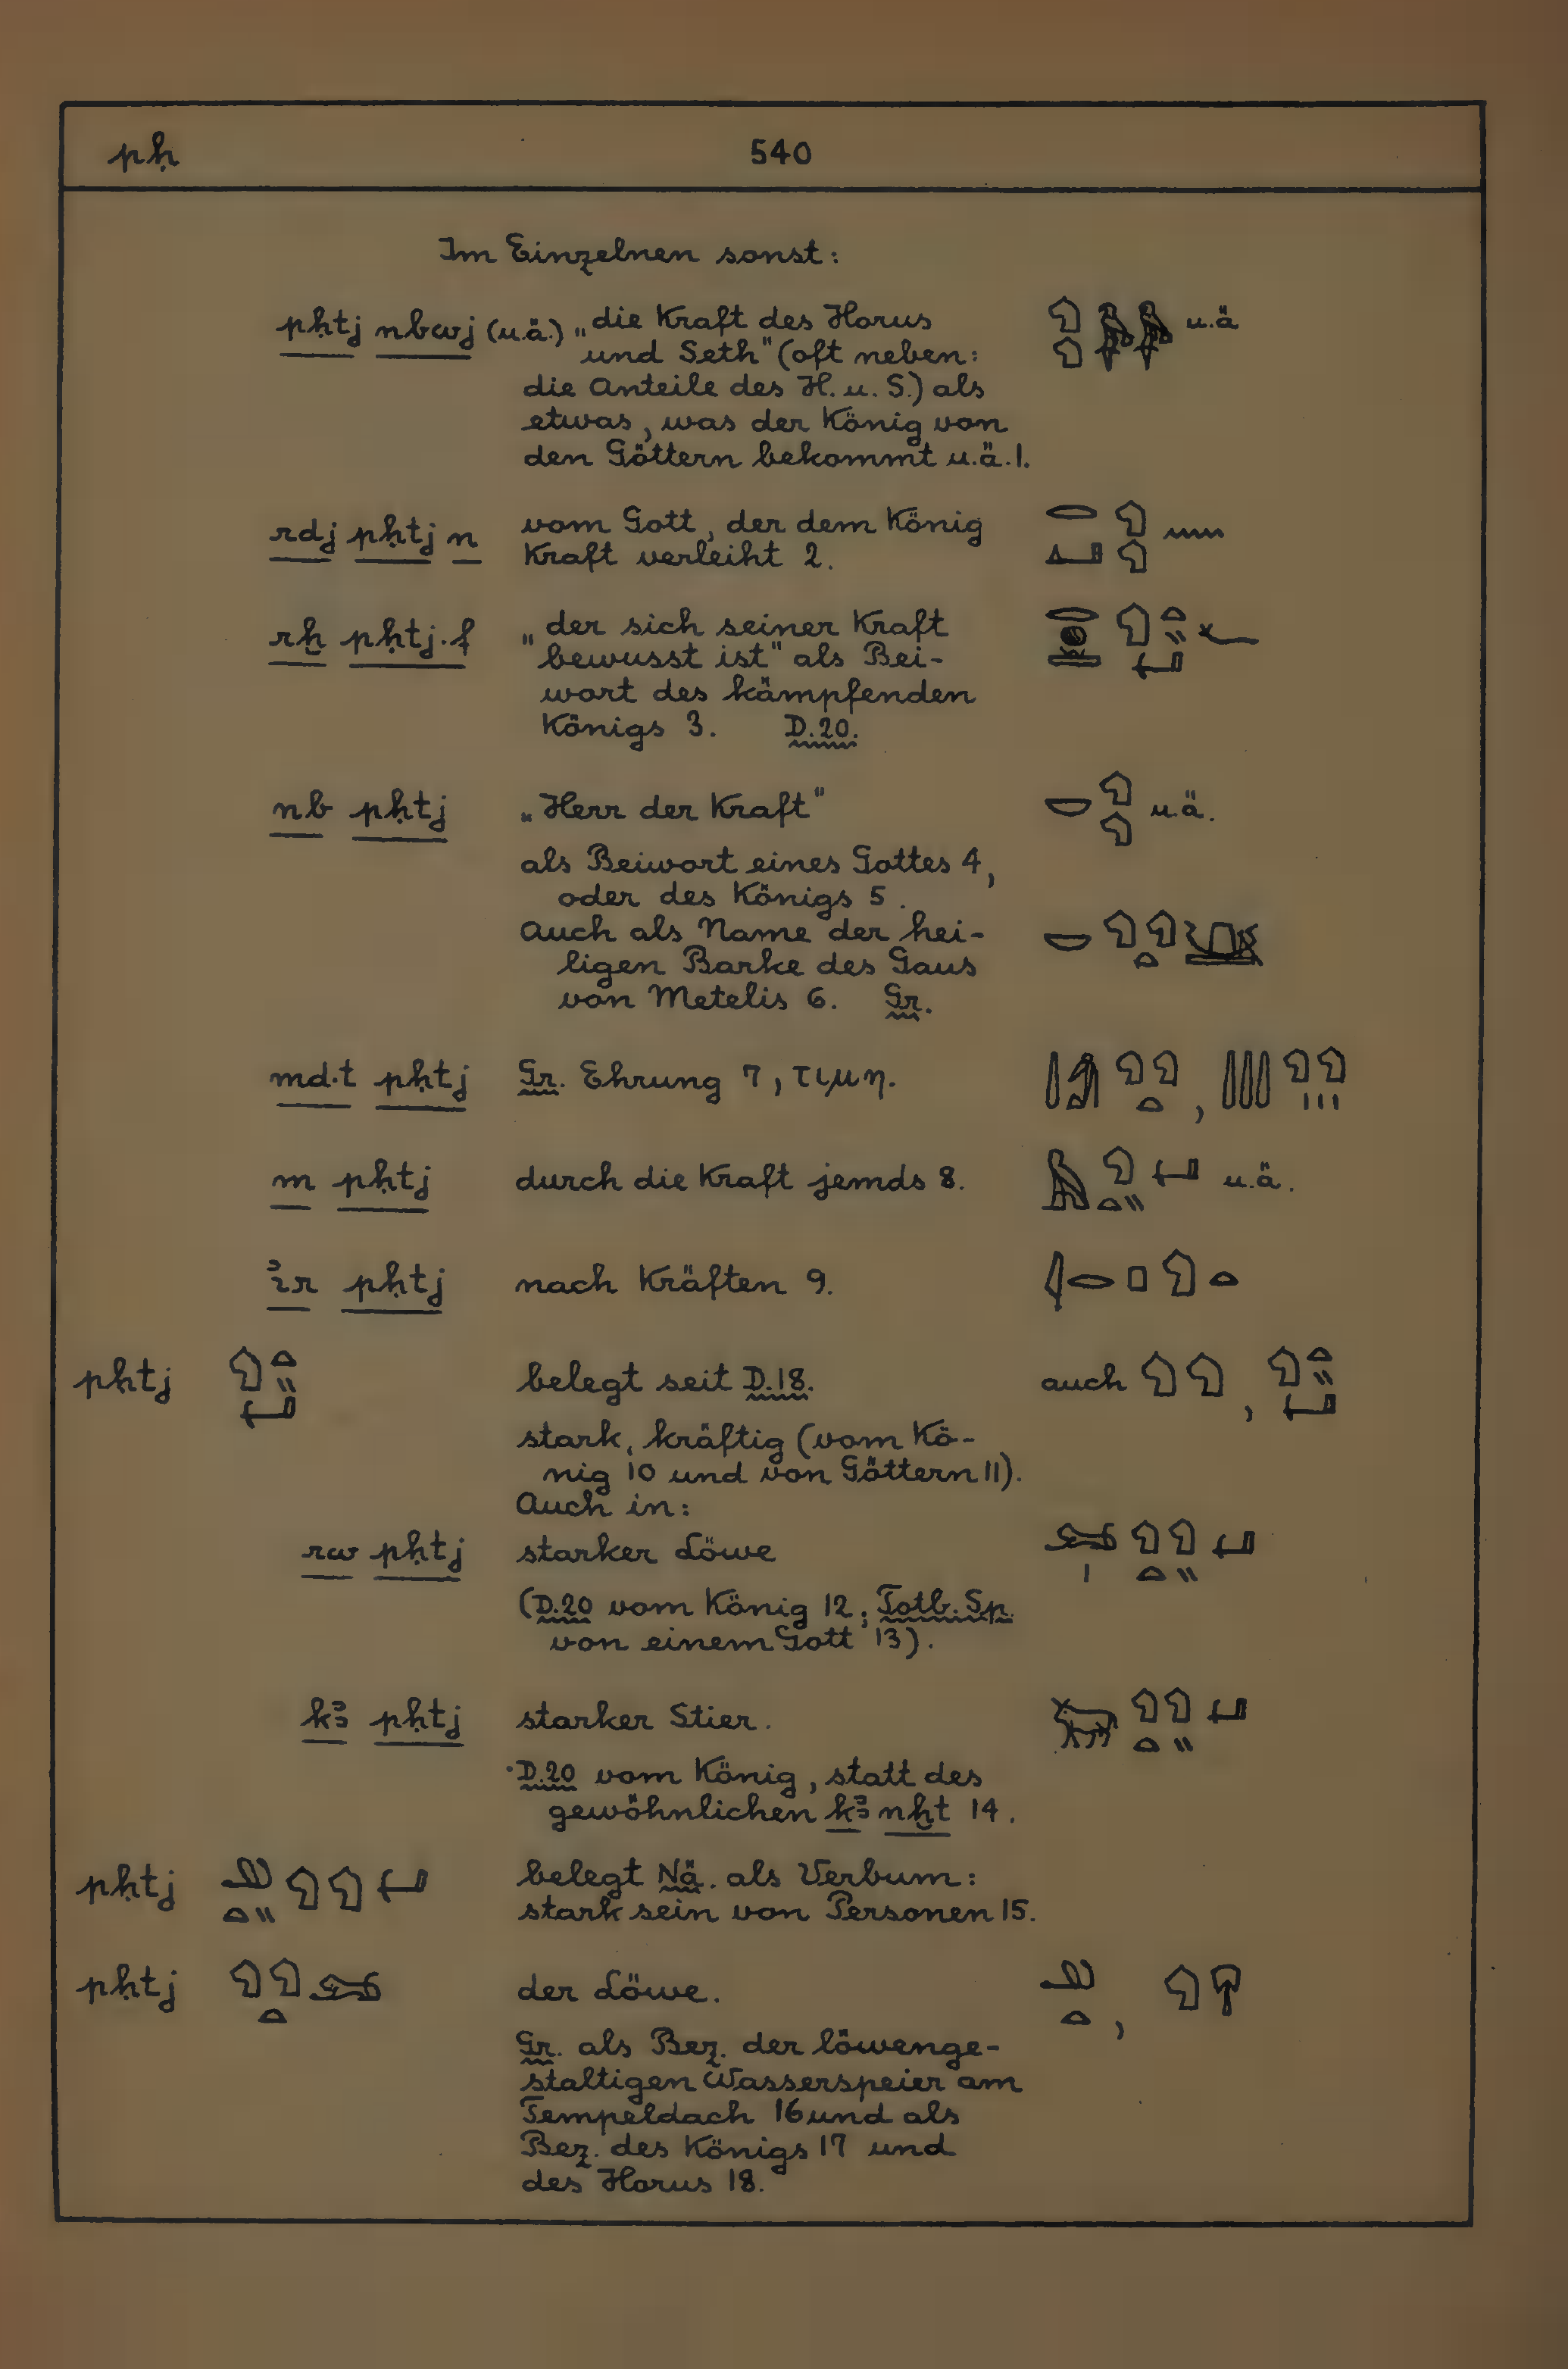 pḥ 540
Im Einzelnen sonst:
pḥtj nbwj (u.ä.) „die Kraft des Horus u.ä
und Seth" (oft neben:
die Anteile des H. u. S.) als
etwas, was der König von
den Göttern bekommt u.ä. 1.
rdj pḥtj n vom Gott, der dem König
Kraft verleiht 2.
rḫ pḥtj.f „der sich seiner Kraft
bewusst ist" als Bei-
wort des kämpfenden
Königs 3. D.20.
nb pḥtj „Herr der Kraft" u.ä.
als Beiwort eines Gottes 4,
oder des Königs 5.
Auch als Name der hei-
ligen Barke des Gaus
von Metelis 6. Gr.
md.t pḥtj Gr. Ehrung 7, τιμη.
m pḥtj durch die Kraft jemds 8. u.ä.
ꞽr pḥtj nach Kräften 9.
pḥtj belegt seit D.18. auch
stark, kräftig (vom Kö-
nig 10 und von Göttern 11).
Auch in:
rw pḥtj starker Löwe
(D.20 vom König 12; Totb. Sp.
von einem Gott 13).
kꜣ pḥtj starker Stier.
D.20 vom König, statt des
gewöhnlichen kꜣ nḫt 14.
pḥtj belegt Nä. als Verbum:
stark sein von Personen 15.
pḥtj der Löwe.
Gr. als Bez. der löwenge-
staltigen Wasserspeier am
Tempeldach 16 und als
Bez. des Königs 17 und
des Horus 18.